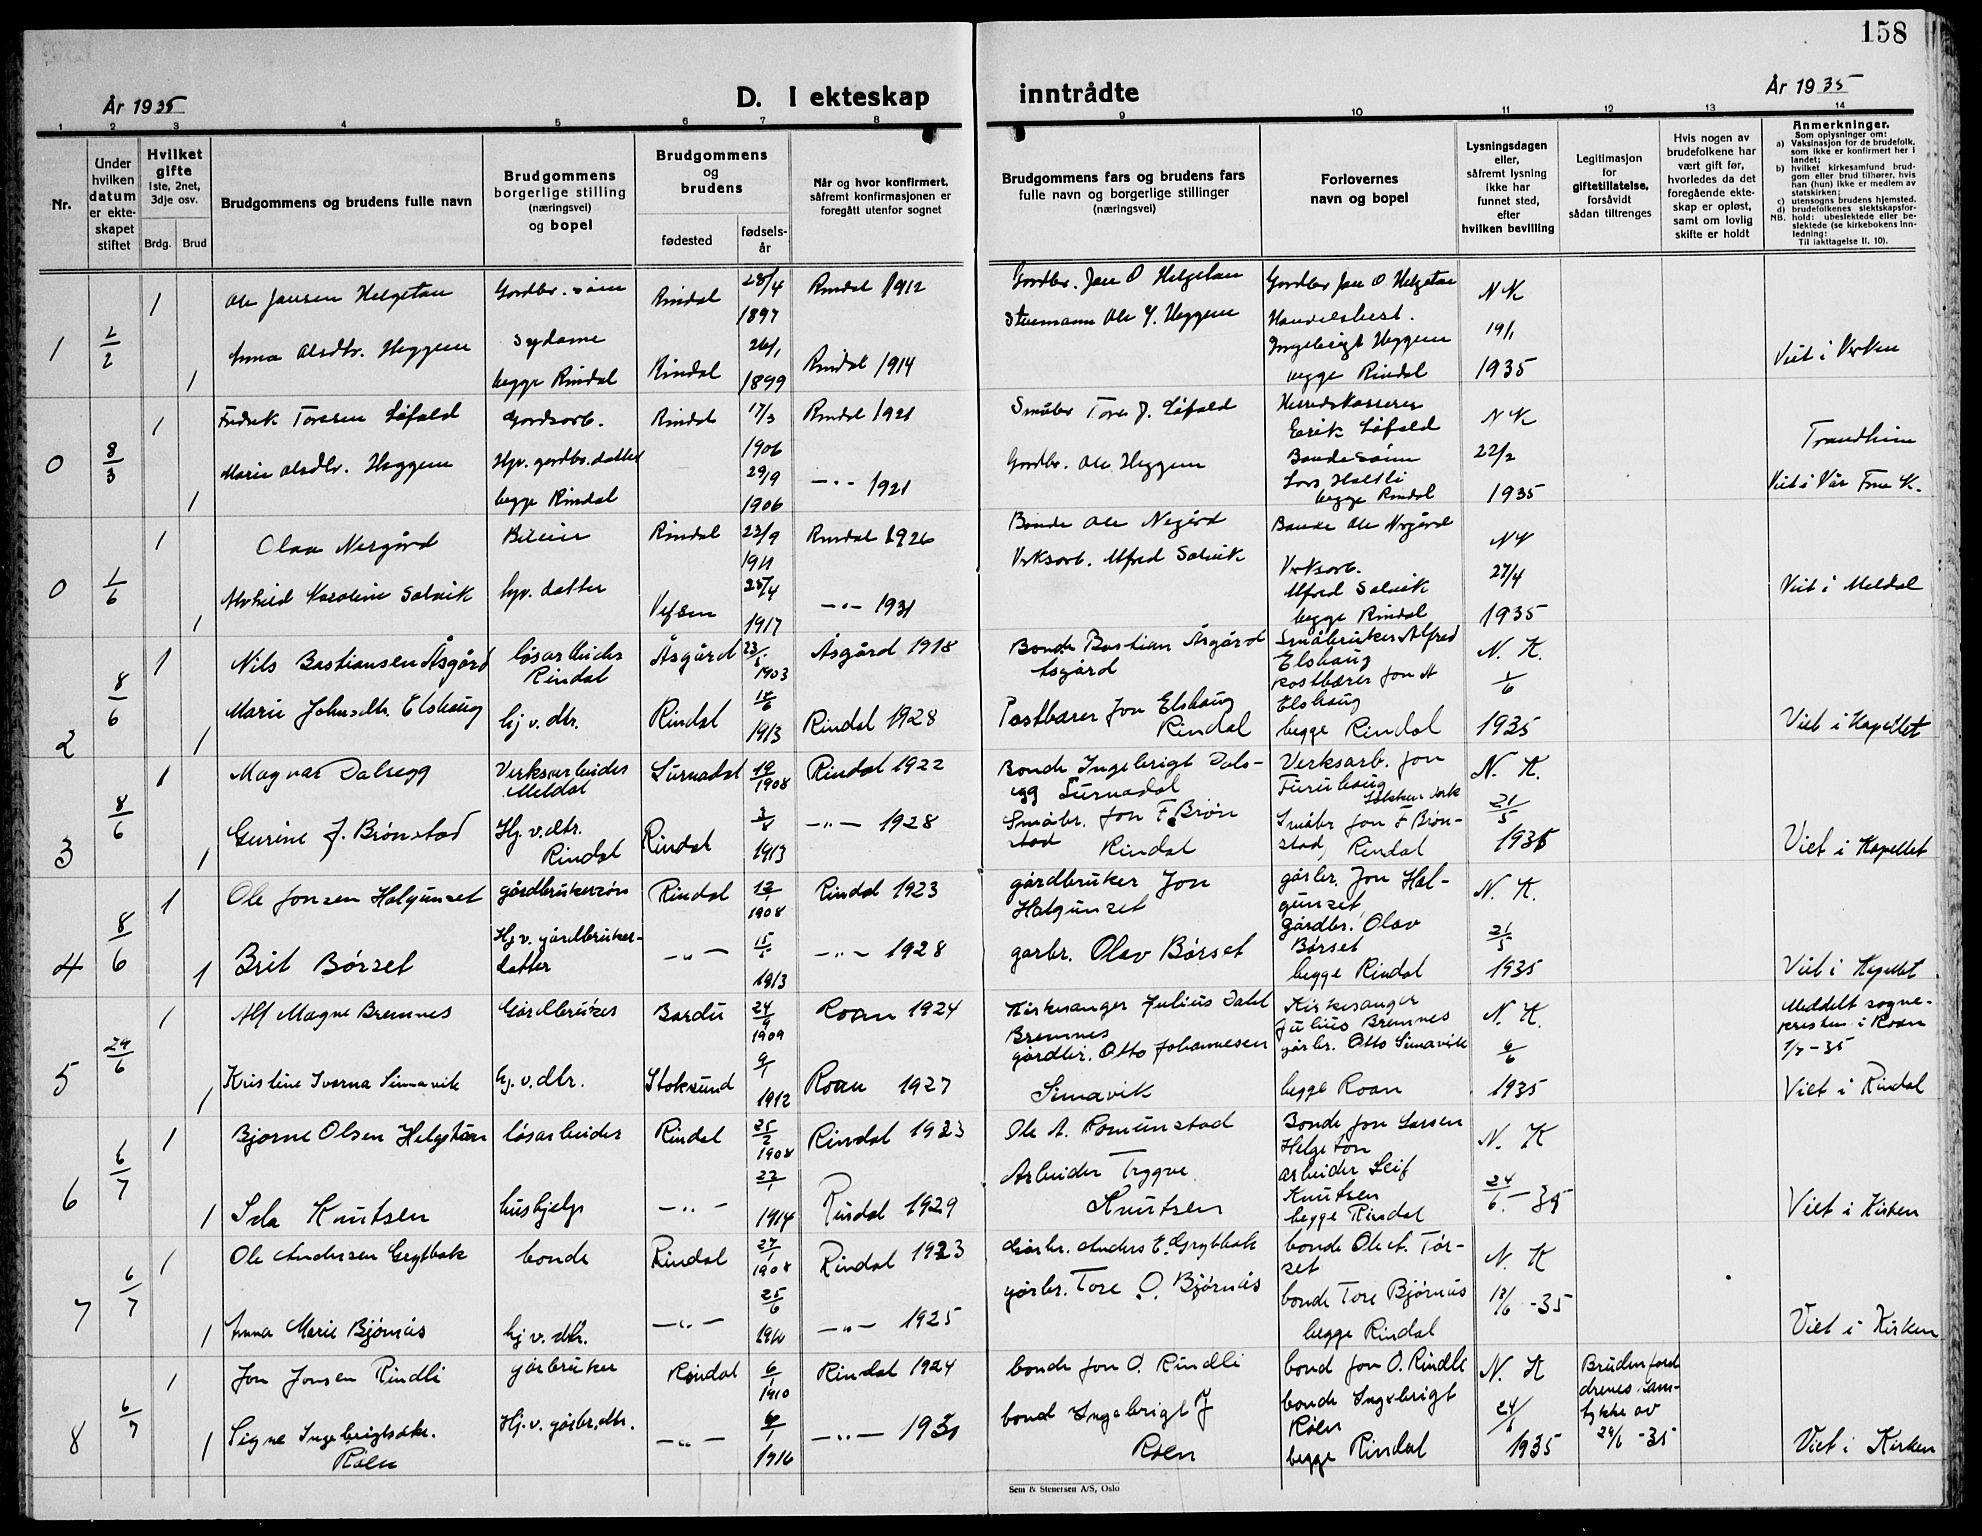 158
År 1935
D. I ekteskap inntrådte
År 1935
1 2 3 4 5 6 7 8 9 10 11 12 13 14
Nr.
Under hvilken datum er ekteskapet stiftet
Hvilket gifte
1ste, 2net, 3dje osv.
Brdg. Brud
Brudgommens og brudens fulle navn
Brudgommens borgerlige stilling (næringsvei) og bopel
Brudgommens og brudens
fødested
fødselsår
Når og hvor konfirmert, såfremt konfirmasjonen er foregått utenfor sognet
Brudgommens fars og brudens fars fulle navn og borgerlige stillinger (næringsvei)
Forlovernes navn og bopel
Lysningsdagen eller, såfremt lysning ikke har funnet sted, efter hvilken bevilling
Legitimasjon for giftetillatelse, forsåvidt sådan tiltrenges
Hvis nogen av brudefolkene har vært gift før, hvorledes da det foregående ekteskap er opløst, samt om lovlig skifte er holdt
Anmerkninger.
Som oplysninger om:
a) Vaksinasjon for de brudefolk, som ikke er konfirmert her i landet;
b) hvilket kirkesamfund brudgom eller brud tilhører, hvis han (hun) ikke er medlem av statskirken;
c) utensogns brudens hjemsted.
d) brudefolkenes slektskapsforhold: ubeslektede eller beslektede (se kirkebokens innledning:
NB. Til iakttagelse II. 10).
1 2/2 1 Ole Jansen Helgetun Gardbr. sønn Rindal 28/4 1897 Rindal 1912 Gardbr. Jon O Helgetun Gardbr Jon O Helgetun N K
1 Anna Olsdtr. Heggem Sydame begge Rindal Rindal 26/1 1899 Rindal 1914 Ole J. Heggem Handelsbest. Ingebrigt Heggem begge Rindal 19/1 1935 Viet i Kirken
0 8/3 1 Fredrik Toresen Løfald Gardsarb. Rindal 17/3 1906 Rindal 1921 Småbr Tore J. Løfald Herredskasserer Eirik Løfald N K
1 Marie Olsdtr. Heggem Hjv. gardbr. datter begge Rindal 29/9 1906 -"- 1921 Gardbr. Ole Heggem Bondesønn Lars Haltli begge Rindal 22/2 1935 Trondheim Viet i Vår Frue K.
0 1/6 1 Olav Nergård Bileier Rindal 23/9 1911 Rindal 1926 Bonde Ole Nergård Bonde Ole Nergård NK
1 Karoline Solvik hjv. datter Vefsen 25/4 1917 -"- 1931 Verksarb. Alfred Solvik Verksarb. Alfred Solvik begge Rindal 27/4 1935 Viet i Meldal
2 8/6 1 Nils Bastiansen Åsgård løsarbeider Rindal Åsgård 1903 Åsgård 1918 Bonde Bastian Åsgård Åsgård Småbruker Alfred Elshaug N. K.
1 Marie Johnsdtr. Elshaug hj. v. dtr. Rindal 1913 Rindal 1928 Postbærer Jon Elshaug Rindal Postbærer Jon Elshaug begge Rindal 1/6 1935 Viet i Kapellet
3 8/6 1 Magnar Dalsegg Verksarbeider Meldal Surnadal 1908 Rindal 1922 Bonde Ingebrigt Dalsegg Surnadal Verksarb. Jon Furuhaug Løkken Verk N. K.
1 Gurine J. Brønstad Hj. v. dtr. Rindal Rindal 3/8 1913 -"- 1928 Småbr. Jon F. Brønstad Rindal Småbr Jon F Brønstad, Rindal 21/5 1935 Viet i Kapellet
4 8/6 1 Ole Jonsen Halgunset gårdbrukersøn Rindal 1908 Rindal 1923 gårdbruker Jon Halgunset gårbr. Jon Halgunset N. K.
1 Brit Børset Hj. v. gårdbrukerdatter -"- 1913 -"- 1928 garbr. Olav Børset gårdbr. Olav Børset begge Rindal 21/5 1935 Viet i Kapellet
5 29/6 1 Alf Magne Bremnes Gårdbruker Bardu 24/9 1909 Roan 1924 Kirkesanger Julius Dahl Bremnes Kirkesanger Julius Bremnes N. K. Meddelt sognepresten i Roan 1/7-35
1 Kristine Ivarna Simavik hj. v. dtr. Stoksund 9/1 1912 Roan 1927 gårdbr. Otto Johannesen Simavik gårbr. Otto Simavik begge Roan 6/6 1935 Viet i Rindal
6 6/7 1 Bjarne Olsen Helgetun løsarbeider Rindal 25/2 1908 Rindal 1923 Ole A. Romunstad Bonde Jon Larsen Helgeton N. K
1 Ida Knutsen hushjelp -"- 1914 Rindal 1929 Arbeider Trygve Knutsen arbeider Leif Knutsen begge Rindal 24/6 - 35 Viet i Kirken
7 6/7 1 Ole Andersen Grytbak bonde Rindal 27/1 1908 Rindal 1923 Gårbr. Anders E. Grytbak bonde Ole A. Tørset N. K
1 Anna Marie Bjørnås hj v. dtr. -"- 25/6 1910 -"- 1925 gårbr. Tore O. Bjørnås bonde Tore Bjørnås begge Rindal 18/6 -35 Viet i Kirken
8 6/7 1 Jon Jonsen Rindli gårbruker Rindal 6/1 1910 Rindal 1924 bonde Jon O. Rindli bond Jon O. Rindli N. K Brudens foreldrenes samtykke av 24/6 -35
1 Signe Ingebrigtsdtr. Røen Hj. v. gårbr. dtr. -"- 1916 -"- 1930 bond Ingebrigt J Røen bonde Ingebrigt Røen begge Rindal 24/6 1935 Viet i Kirken
Sem & Stenersen A/S, Oslo